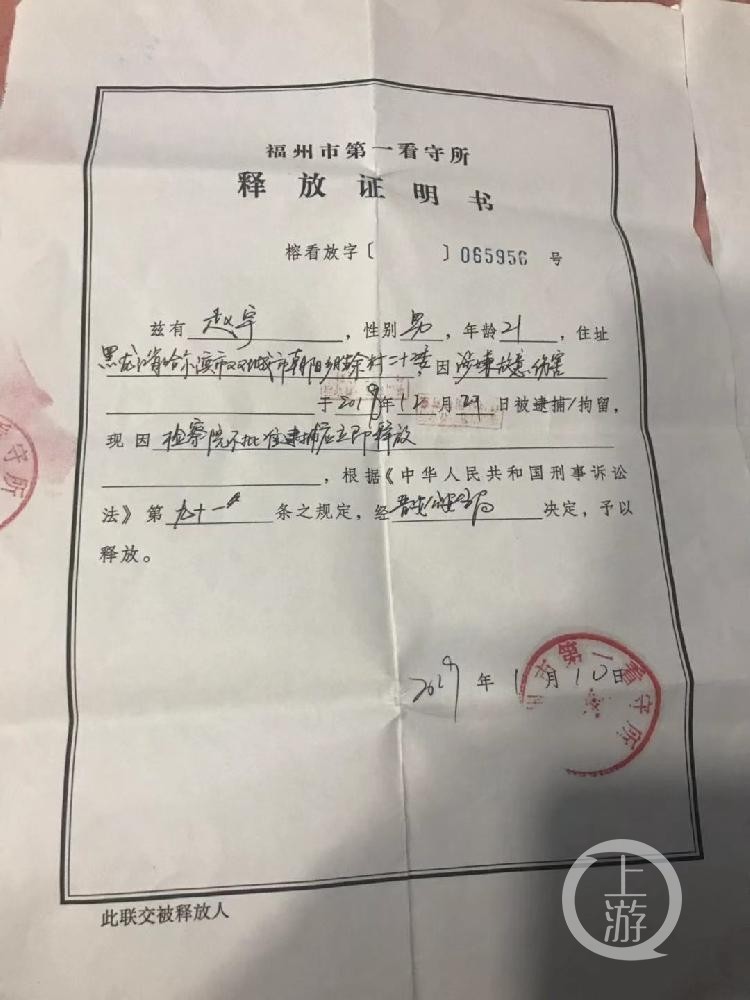 福州市第一看守所
释放证明书
榕看放字〔 〕065956 号
兹有 赵宇 ,性别 男 ,年龄 21 ,住址
黑龙江省哈尔滨市双城市朝阳乡 村 因 涉嫌故意伤害
于2018年12月29日被逮捕/拘留,
现因 检察院不批准逮捕应立即释放
,根据《中华人民共和国刑事诉讼
法》第 九十一 条之规定,经 公安分局 决定,予以
释放。
2019年1月10日
州市第一看守所
守所
此联交被释放人
上游